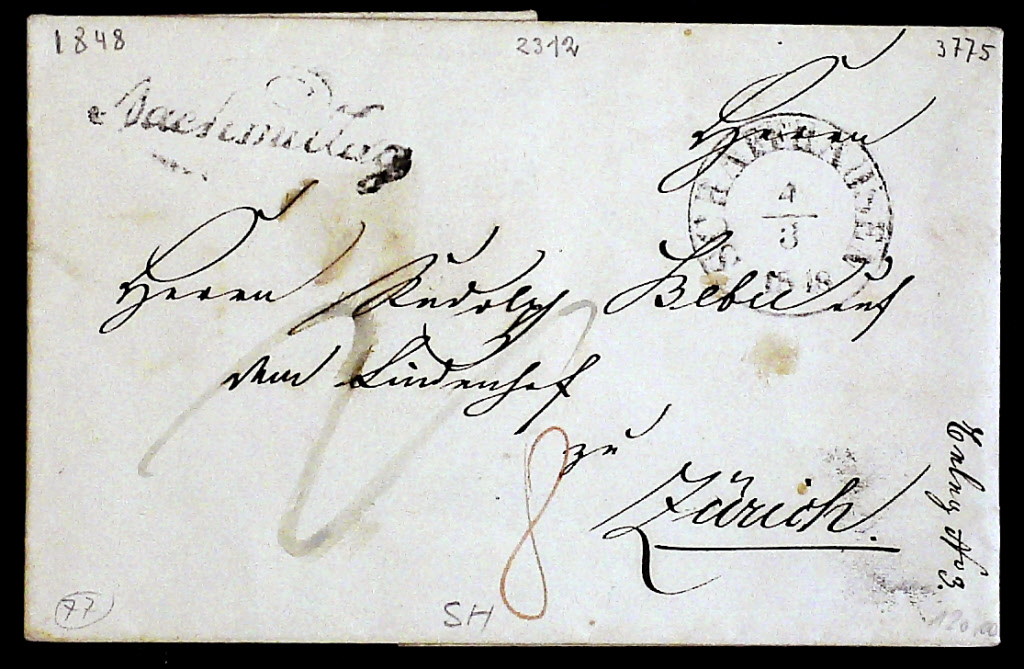 1848 2312 3775
Nachmittag
Herren
SCHAFFHAUSEN
4
3
1848
Herrn Rudolph auf
dem Lindenhof
8 zu
Zürich.
No 3.
77 SH 120.00